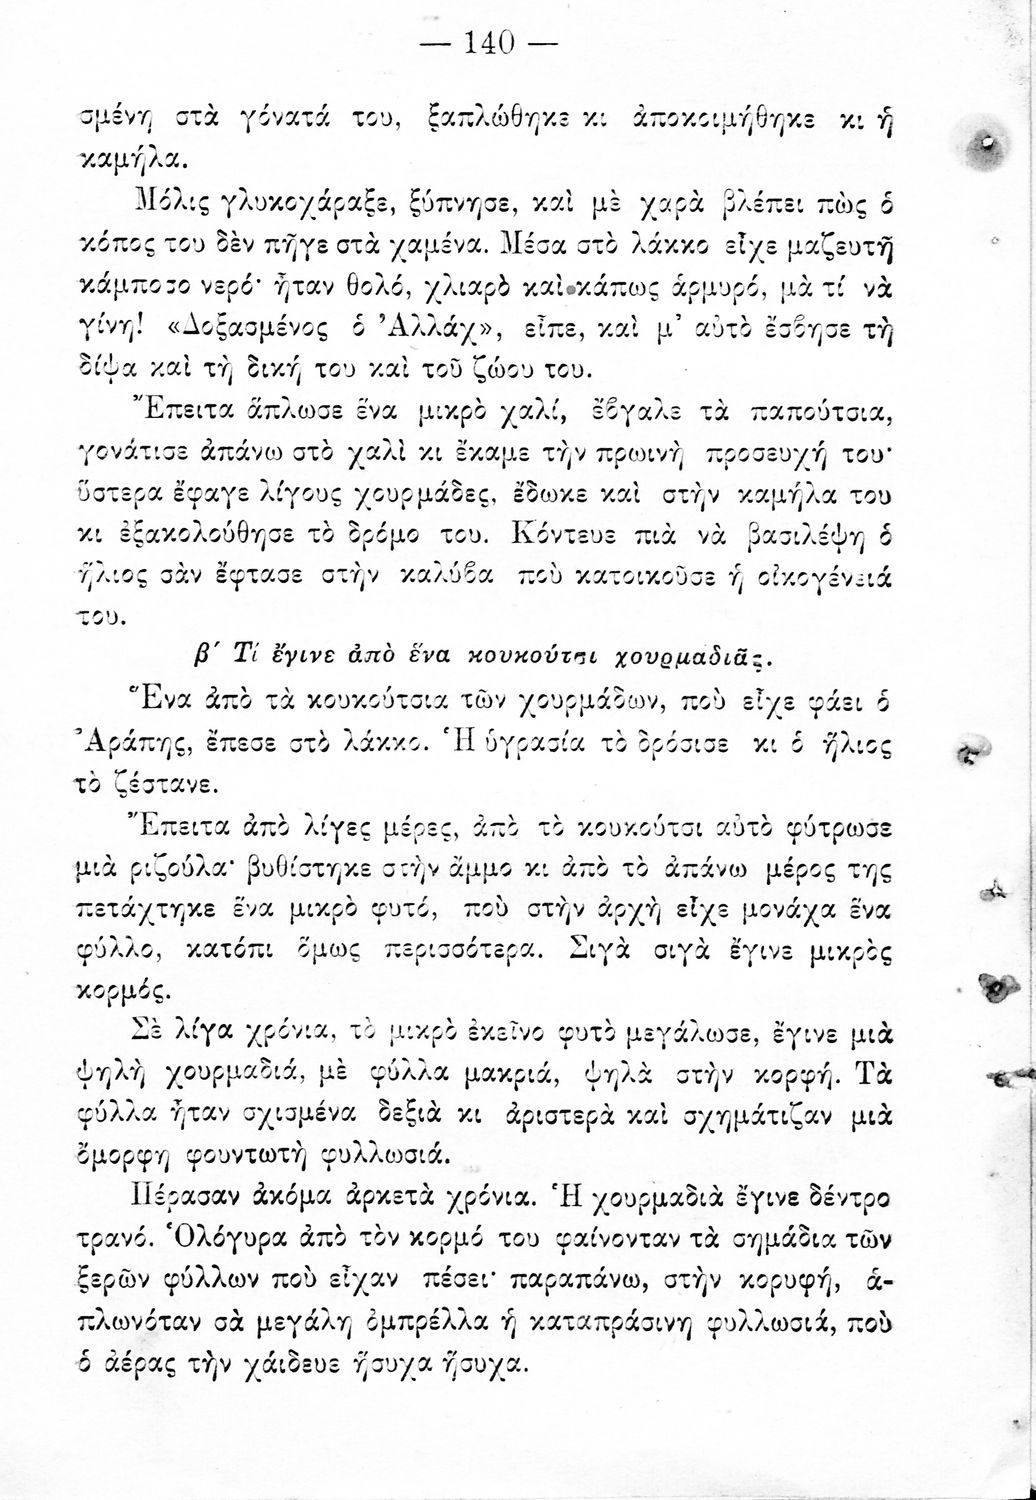 — 140 —
σμένη στὰ γόνατά του, ξαπλώθηκε κι ἀποκοιμήθηκε κι ἡ
καμήλα.
Μόλις γλυκοχάραξε, ξύπνησε, καὶ μὲ χαρὰ βλέπει πὼς ὁ
κόπος του δὲν πῆγε στὰ χαμένα. Μέσα στὸ λάκκο εἶχε μαζευτῆ
κάμποσο νερό· ἦταν θολό, χλιαρὸ καὶ κάπως ἁρμυρό, μὰ τί νὰ
γίνη! «Δοξασμένος ὁ Ἀλλάχ», εἶπε, καὶ μ’ αὐτὸ ἔσβησε τὴ
δίψα καὶ τὴ δική του καὶ τοῦ ζώου του.
Ἔπειτα ἅπλωσε ἕνα μικρὸ χαλί, ἔβγαλε τὰ παπούτσια,
γονάτισε ἀπάνω στὸ χαλὶ κι ἔκαμε τὴν πρωινὴ προσευχή του·
ὕστερα ἔφαγε λίγους χουρμάδες, ἔδωκε καὶ στὴν καμήλα του
κι ἐξακολούθησε τὸ δρόμο του. Κόντευε πιὰ νὰ βασιλέψη ὁ
ἥλιος σὰν ἔφτασε στὴν καλύβα ποὺ κατοικοῦσε ἡ οἰκογένειά
του.
β′ Τί ἔγινε ἀπὸ ἕνα κουκούτσι χουρμαδιᾶς.
Ἕνα ἀπὸ τὰ κουκούτσια τῶν χουρμάδων, ποὺ εἶχε φάει ὁ
Ἀράπης, ἔπεσε στὸ λάκκο. Ἡ ὑγρασία τὸ δρόσισε κι ὁ ἥλιος
τὸ ζέστανε.
Ἔπειτα ἀπὸ λίγες μέρες, ἀπὸ τὸ κουκούτσι αὐτὸ φύτρωσε
μιὰ ριζούλα· βυθίστηκε στὴν ἄμμο κι ἀπὸ τὸ ἀπάνω μέρος της
πετάχτηκε ἕνα μικρὸ φυτό, ποὺ στὴν ἀρχὴ εἶχε μονάχα ἕνα
φύλλο, κατόπι ὅμως περισσότερα. Σιγὰ σιγὰ ἔγινε μικρὸς
κορμός.
Σὲ λίγα χρόνια, τὸ μικρὸ ἐκεῖνο φυτὸ μεγάλωσε, ἔγινε μιὰ
ψηλὴ χουρμαδιά, μὲ φύλλα μακριά, ψηλὰ στὴν κορφή. Τὰ
φύλλα ἦταν σχισμένα δεξιὰ κι ἀριστερὰ καὶ σχημάτιζαν μιὰ
ὄμορφη φουντωτὴ φυλλωσιά.
Πέρασαν ἀκόμα ἀρκετὰ χρόνια. Ἡ χουρμαδιὰ ἔγινε δέντρο
τρανό. Ὁλόγυρα ἀπὸ τὸν κορμό του φαίνονταν τὰ σημάδια τῶν
ξερῶν φύλλων ποὺ εἶχαν πέσει· παραπάνω, στὴν κορυφή, ἁ-
πλωνόταν σὰ μεγάλη ὀμπρέλλα ἡ καταπράσινη φυλλωσιά, ποὺ
ὁ ἀέρας τὴν χάιδευε ἥσυχα ἥσυχα.